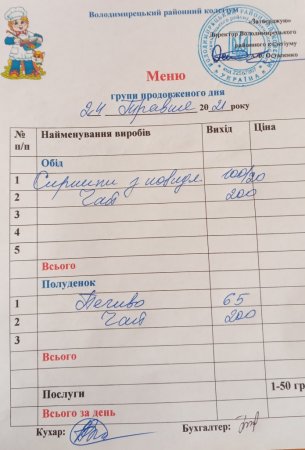 Володимирецький районний колегіум
«Затверджую»
Директор Володимирецького
районного колегіуму
Меню
групи продовженого дня
24 Травня 2021 року
№ п/п Найменування виробів Вихід Ціна
Обід
1 Сирники з повидл. 100/20
2 Чай 200
3
4
5
Всього
Полуденок
1 Печиво 65
2 Чай 200
3
Всього
Послуги 1-50 гр
Всього за день
Кухар: Бухгалтер: